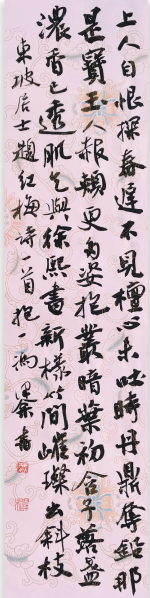 上人自恨探春遲不見檀心未吐時丹鼎奪鉛那
是寶玉人赧頰更多姿抱叢暗葉初含子露盞
濃香已透肌乞與徐熙畫新樣竹間璀璨出斜枝
東坡居士題紅梅詩首抱馮書